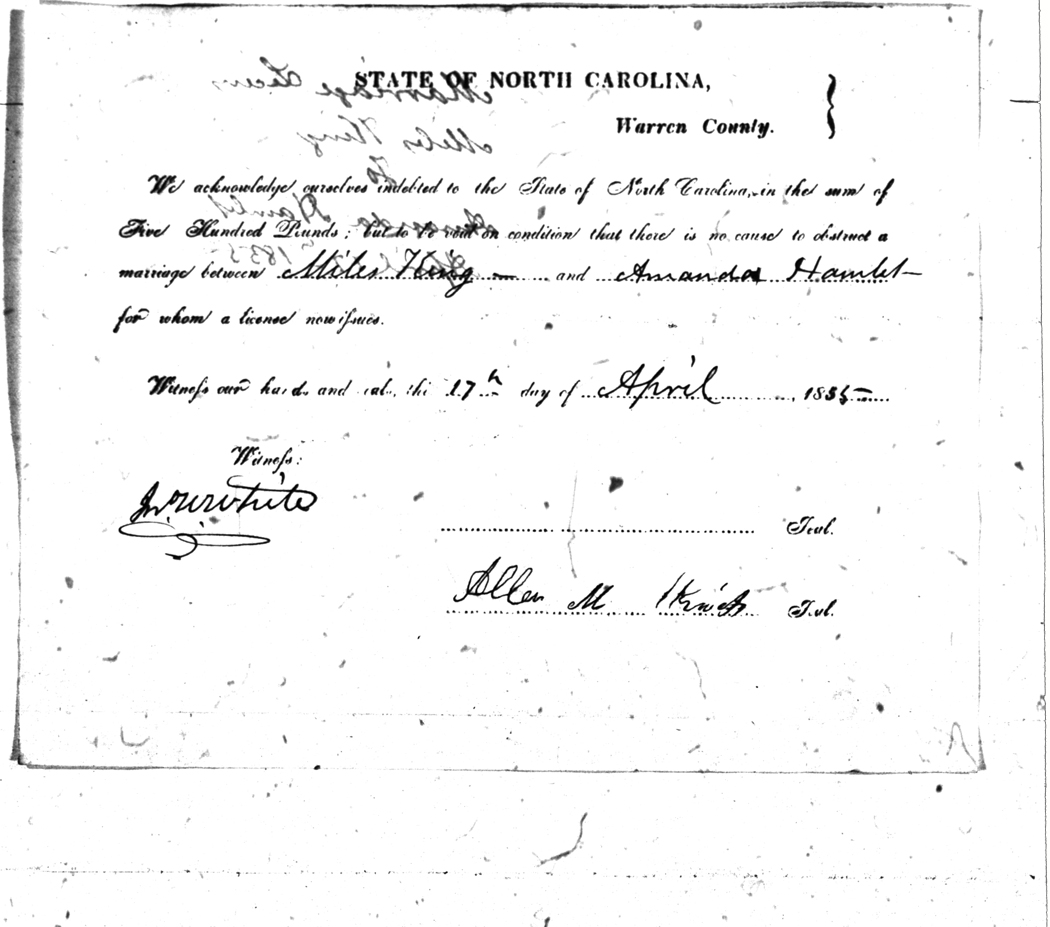 STATE OF NORTH CAROLINA,
Warren County.
We acknowledge ourselves indebted to the State of North Carolina, in the sum of
Five Hundred Pounds; but to be void on condition that there is no cause to obstruct a
marriage between Miles King and Amanda Hamlet
for whom a license now issues.
Witness our hands and seals, this 17th day of April, 1855
Witness:
Jn W White
Seal.
Allen M. Seal.
Marriage
Miles King
To
Amanda Hamlet
1855